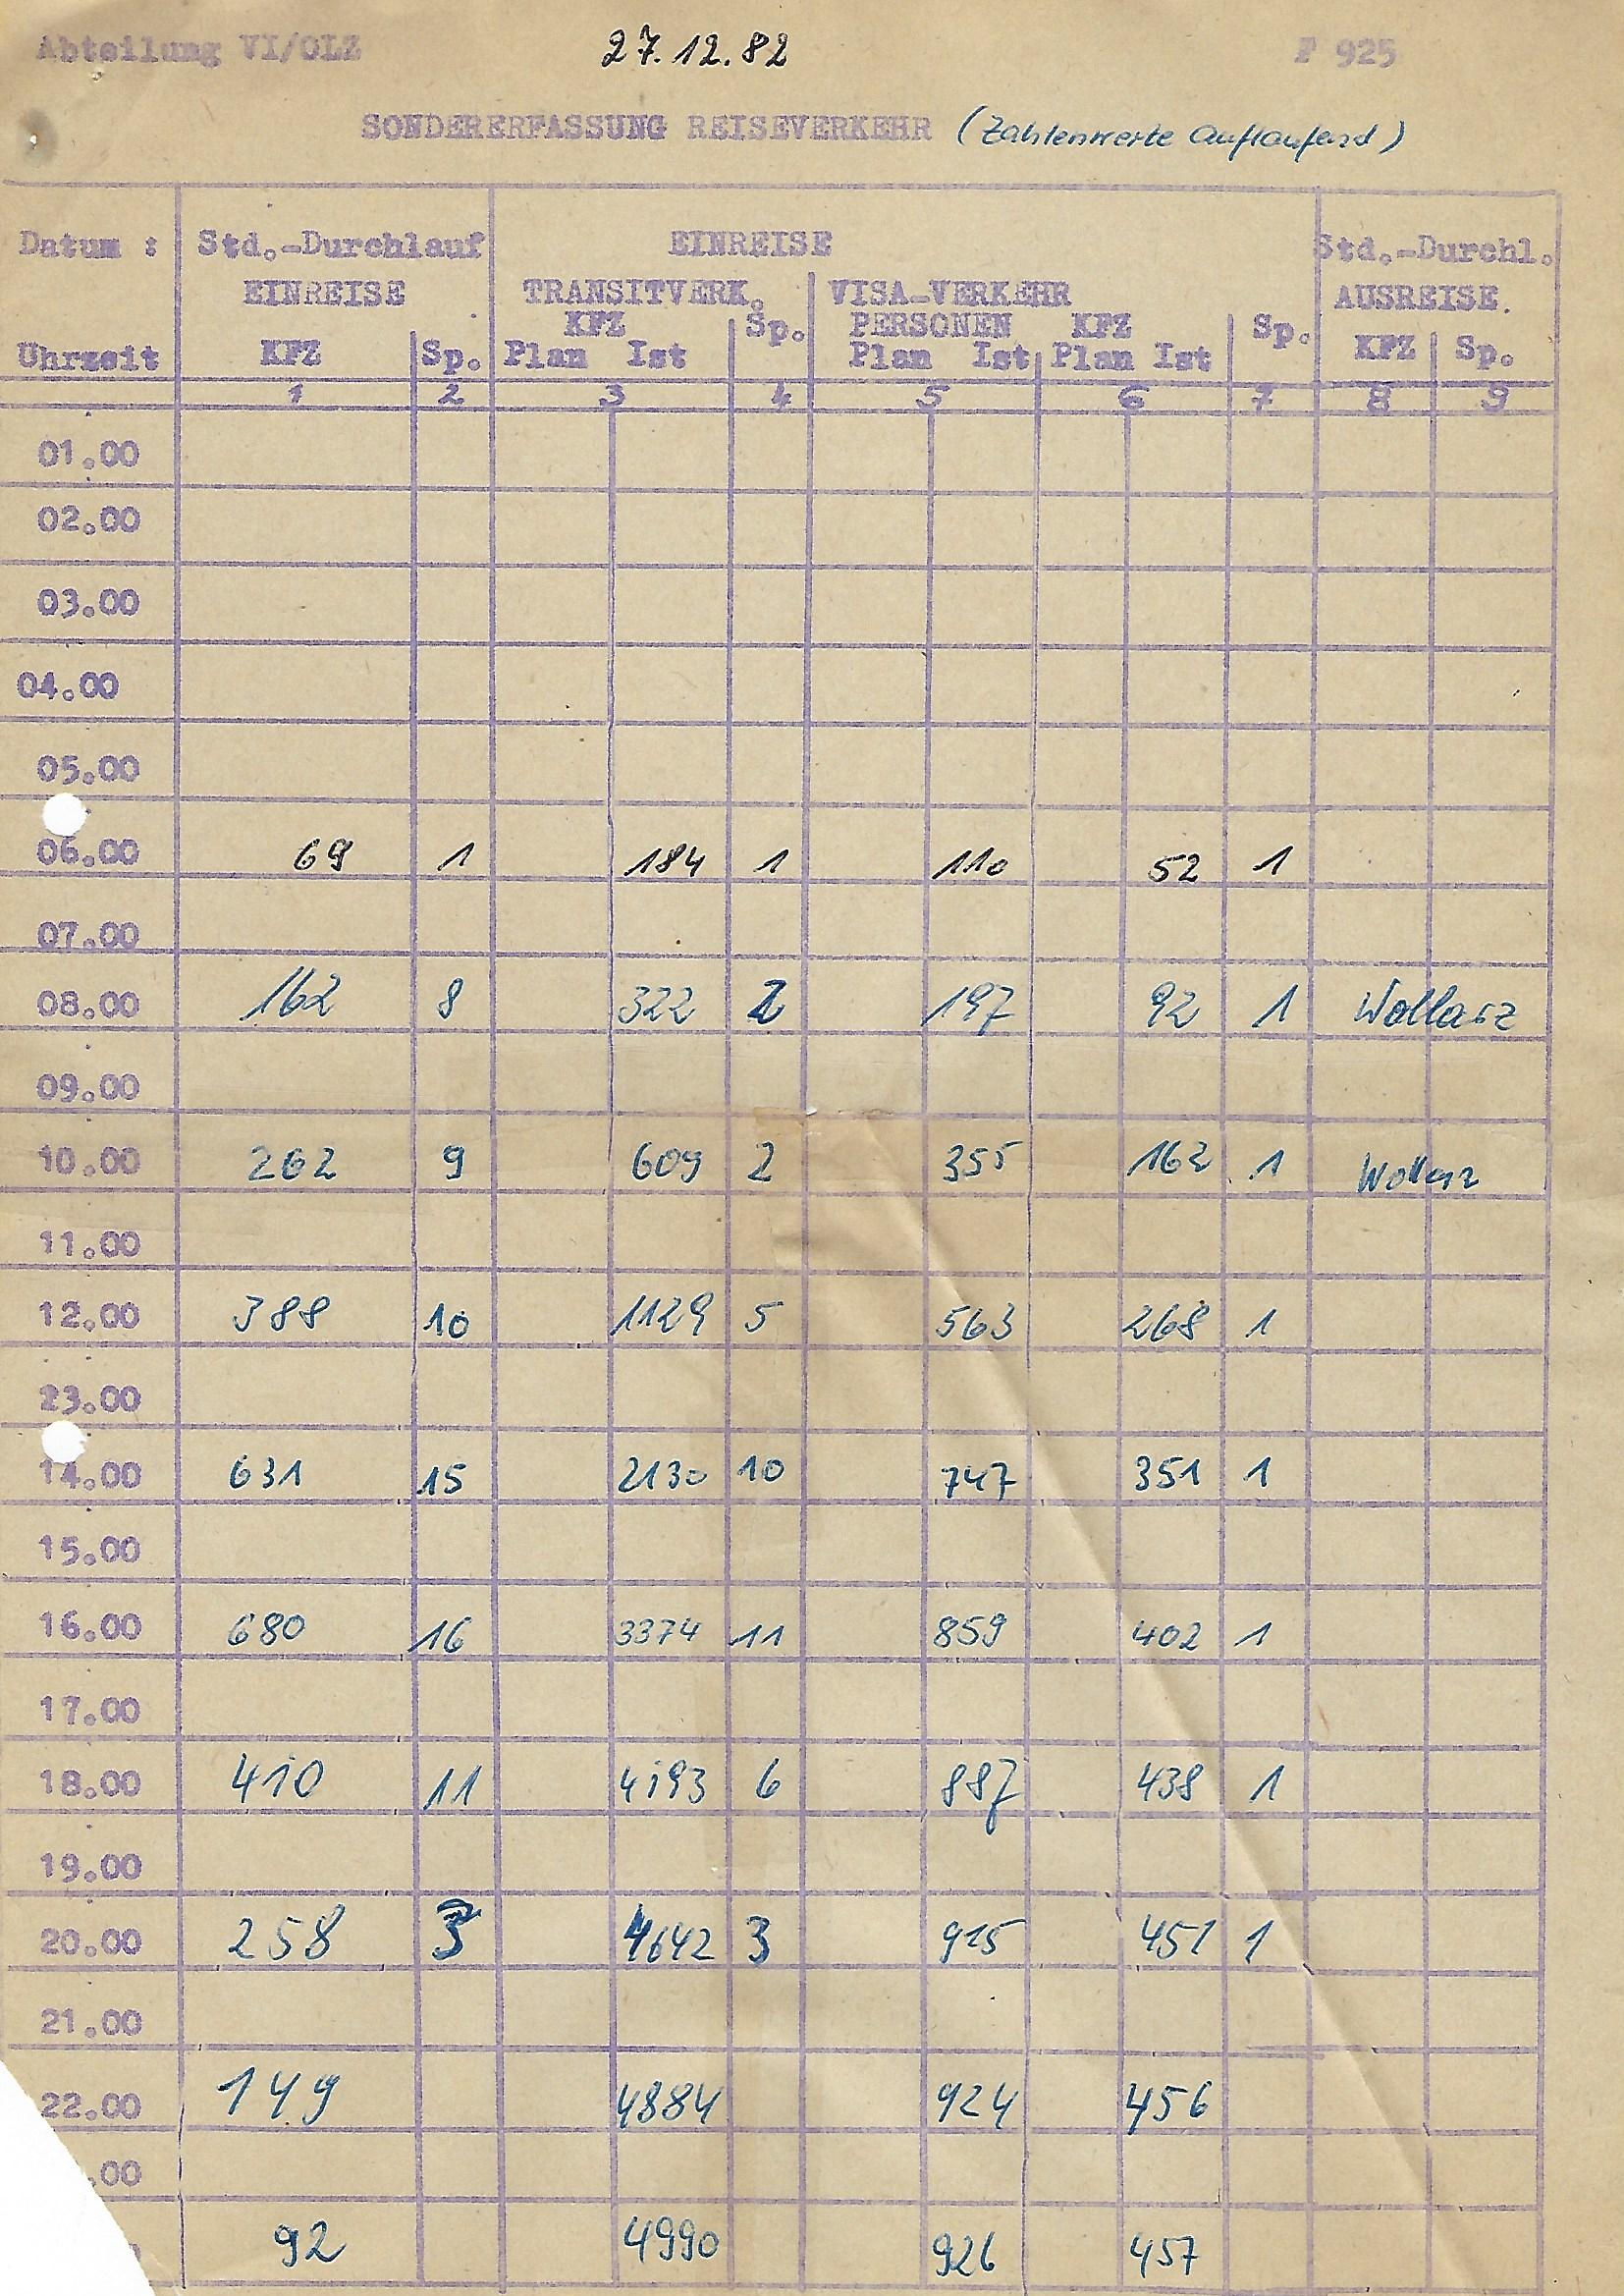 Abteilung VI/OLZ 27.12.82 F 925
SONDERERFASSUNG REISEVERKEHR (Zahlenwerte auflaufend)
Datum : Std.-Durchlauf EINREISE Std.-Durchl.
EINREISE TRANSITVERK. VISA-VERKEHR AUSREISE.
KFZ Sp. PERSONEN KFZ Sp.
Uhrzeit KFZ Sp. Plan Ist Plan Ist Plan Ist KFZ Sp.
1 2 3 4 5 6 7 8 9
01.00
02.00
03.00
04.00
05.00
06.00 69 1 184 1 110 52 1
07.00
08.00 162 8 322 2 197 92 1
09.00
10.00 262 9 609 2 355 162 1
11.00
12.00 388 10 1129 5 563 268 1
23.00
14.00 631 15 2130 10 747 351 1
15.00
16.00 680 16 3374 11 859 402 1
17.00
18.00 410 11 4193 6 887 438 1
19.00
20.00 258 4642 3 915 451 1
21.00
22.00 149 4884 924 456
.00
92 4990 926 457